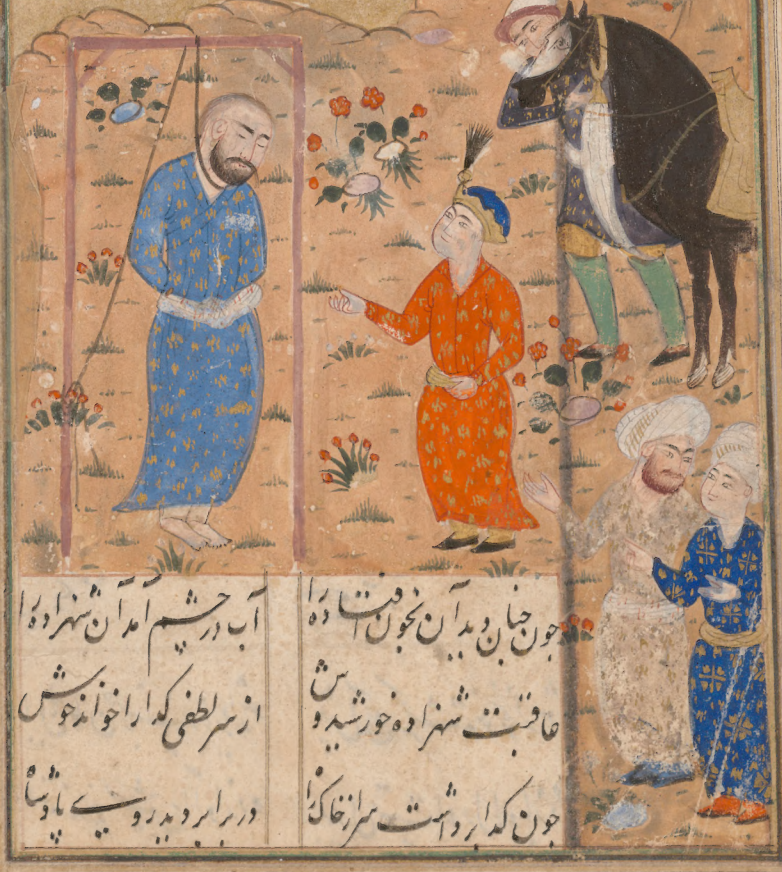 جون جنان دید آن بخون افتاده را آب در چشم آمد آن شهزاده را
عاقبت شهزاده خورشید وش از سر لطفی کدا را خواند خوش
جون کدا برداشت سر از خاک راه در برابر دید روی پادشاه